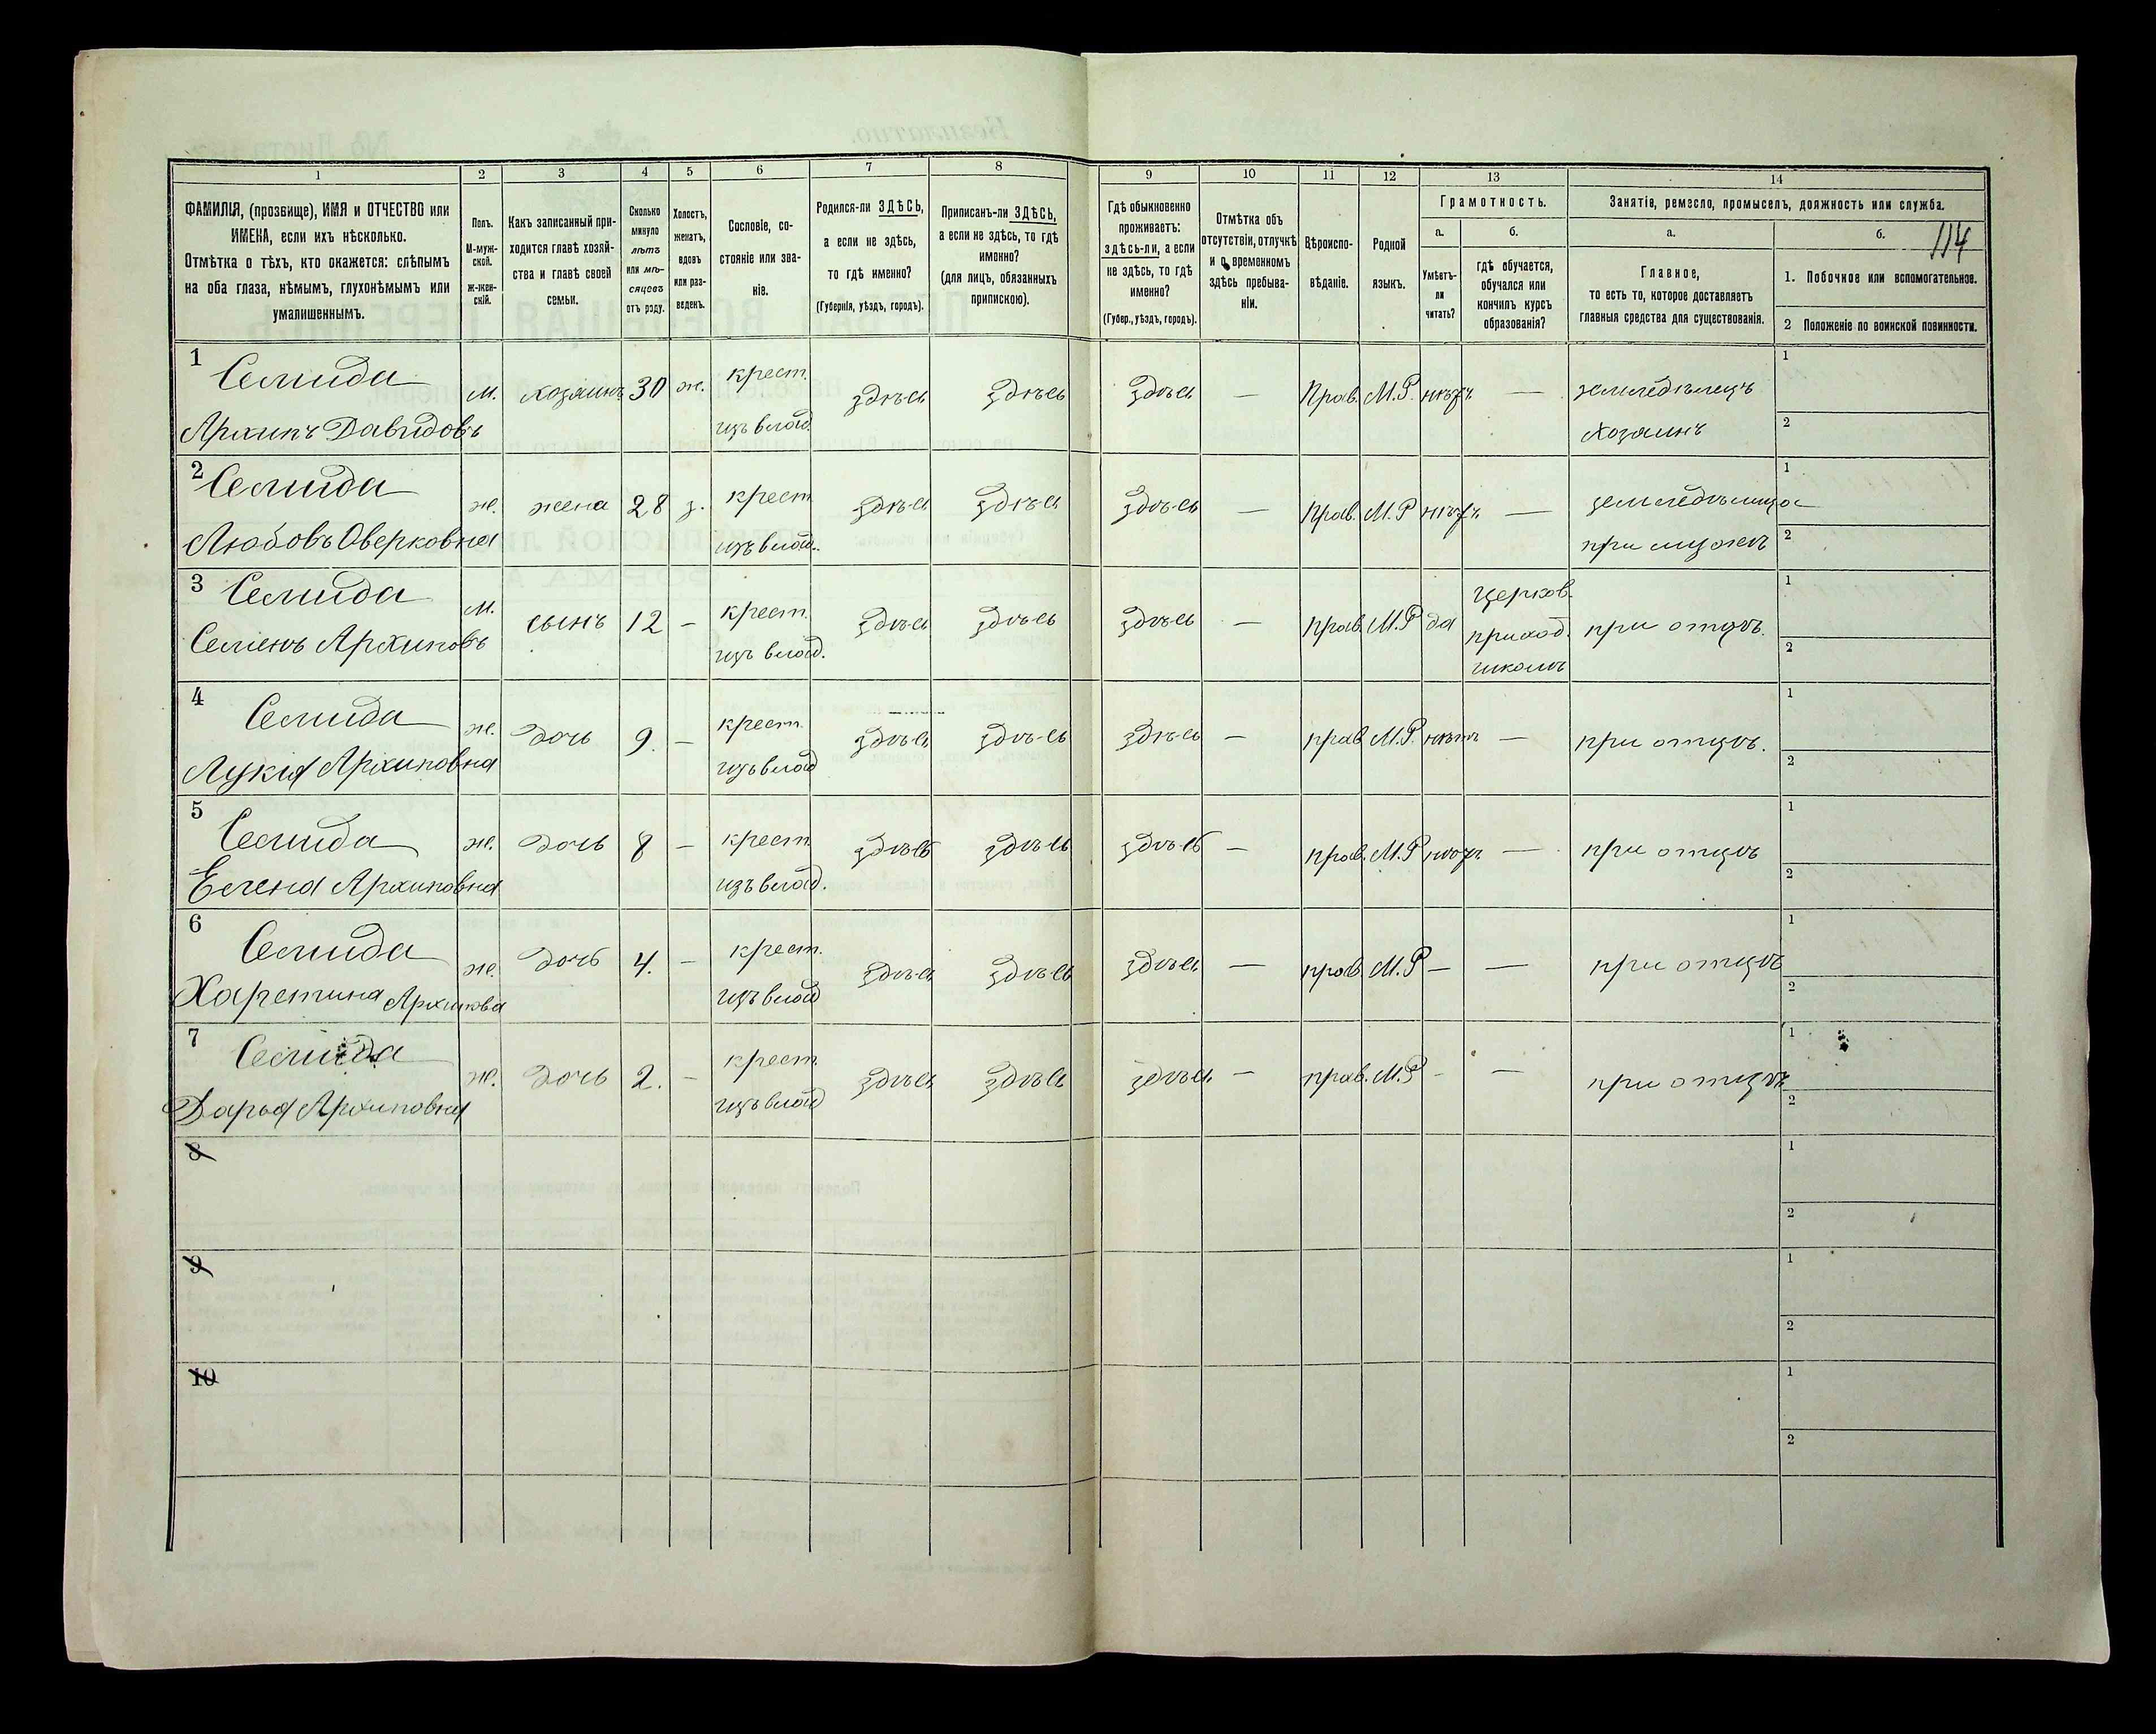 114
1 2 3 4 5 6 7 8 9 10 11 12 13 14
ФАМИЛІЯ, (прозвище), ИМЯ и ОТЧЕСТВО или
ИМЕНА, если ихъ нѣсколько.
Отмѣтка о тѣхъ, кто окажется: слѣпымъ
на оба глаза, нѣмымъ, глухонѣмымъ или
умалишеннымъ.
Полъ.
М-муж-
ской.
ж-жен-
скій.
Какъ записанный при-
ходится главѣ хозяй-
ства и главѣ своей
семьи.
Сколько
минуло
лѣтъ
или мѣ-
сяцевъ
отъ роду.
Холостъ,
женатъ,
вдовъ
или раз-
веденъ.
Сословіе, со-
стояніе или зва-
ніе.
Родился-ли ЗДѢСЬ,
а если не здѣсь,
то гдѣ именно?
(Губернія, уѣздъ, городъ).
Приписанъ-ли ЗДѢСЬ,
а если не здѣсь, то гдѣ
именно?
(для лицъ, обязанныхъ
припискою).
Гдѣ обыкновенно
проживаетъ:
здѣсь-ли, а если
не здѣсь, то гдѣ
именно?
(Губер., уѣздъ, городъ).
Отмѣтка объ
отсутствіи, отлучкѣ
и о временномъ
здѣсь пребыва-
ніи.
Вѣроиспо-
вѣданіе.
Родной
языкъ.
Грамотность.
а.
Умѣетъ-
ли
читать?
б.
гдѣ обучается,
обучался или
кончилъ курсъ
образованія?
Занятіе, ремесло, промыселъ, должность или служба.
а.
Главное,
то есть то, которое доставляетъ
главныя средства для существованія.
б.
1. Побочное или вспомогательное.
2 Положеніе по воинской повинности.
1 Семида м. хозяинъ 30 ж. крест. здѣсь здѣсь здѣсь — Прав. М.Р. нѣтъ — земледѣлецъ 1
Архипъ Давидовъ изъ влад. хозяинъ 2
2 Семида ж. жена 28 з. крест здѣсь здѣсь здѣсь — Прав. М.Р нѣтъ — земледѣлица 1
Любовь Оверковна изъ влад. при мужѣ 2
3 Семида м. сынъ 12 — крест. здѣсь здѣсь здѣсь — прав. М.Р да церков. при отцѣ. 1
Семенъ Архиповъ изъ влад. приход. 2
школѣ
4 Семида ж. дочь 9. — крест. здѣсь здѣсь здѣсь — прав. М.Р. нѣтъ — при отцѣ. 1
Лукія Архиповна изъ влад 2
5 Семида ж. дочь 8 — крест здѣсь здѣсь здѣсь — прав. М.Р нѣтъ — при отцѣ 1
Елена Архиповна изъ влад. 2
6 Семида ж. дочь 4. — крест. здѣсь здѣсь здѣсь — прав М.Р — — при отцѣ 1
Харетина Архипова изъ влад 2
7 Семида ж. дочь 2. — крест. здѣсь здѣсь здѣсь. — прав. М.Р - — при отцѣ 1
Дарья Архиповна изъ влад 2
8 1
2
9 1
2
10 1
2